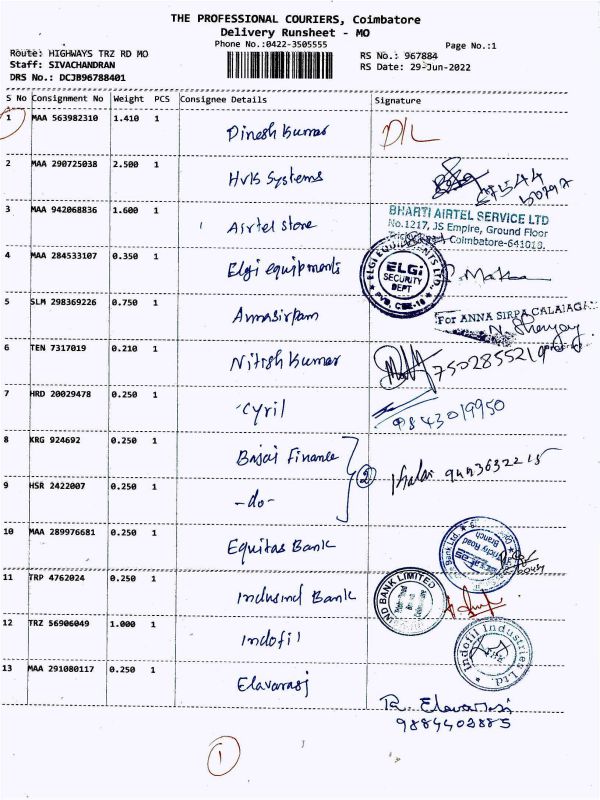 THE PROFESSIONAL COURIERS, Coimbatore
Delivery Runsheet - MO
Phone No.:0422-3505555
Page No.:1
Route: HIGHWAYS TRZ RD MO
RS No.: 967884
Staff: SIVACHANDRAN
RS Date: 29-Jun-2022
DRS No.: DCJB96788401
S No Consignment No Weight PCS Consignee Details Signature
1 MAA 563982310 1.410 1 Dinesh Kumar D/L
2 MAA 290725038 2.500 1 Hvk Systems
3 MAA 942068836 1.600 1 Airtel store
BHARTI AIRTEL SERVICE LTD
No.1217, JS Empire, Ground Floor
Coimbatore-641018.
4 MAA 284533107 0.350 1 Elgi equipments
ELGI EQUIPMENTS LTD.,
ELGi
SECURITY
DEPT
5 SLM 298369226 0.750 1 Annasirpam
For ANNA SIRPA CALAIAGA
6 TEN 7317019 0.210 1 Nitish Kumar 7502855219
7 HRD 20029478 0.250 1 Cyril 9843019950
8 KRG 924692 0.250 1 Bajaj Finance
2
9 HSR 2422007 0.250 1 -do-
10 MAA 289976681 0.250 1 Equitas Bank
Trichy Road
Branch
11 TRP 4762024 0.250 1 Indusind Bank
IND BANK LIMITED
12 TRZ 56906049 1.000 1 Indofil
Indofil Industries Ltd.
13 MAA 291080117 0.250 1 Elavarasi
R. Elavarasi
9884402885
1